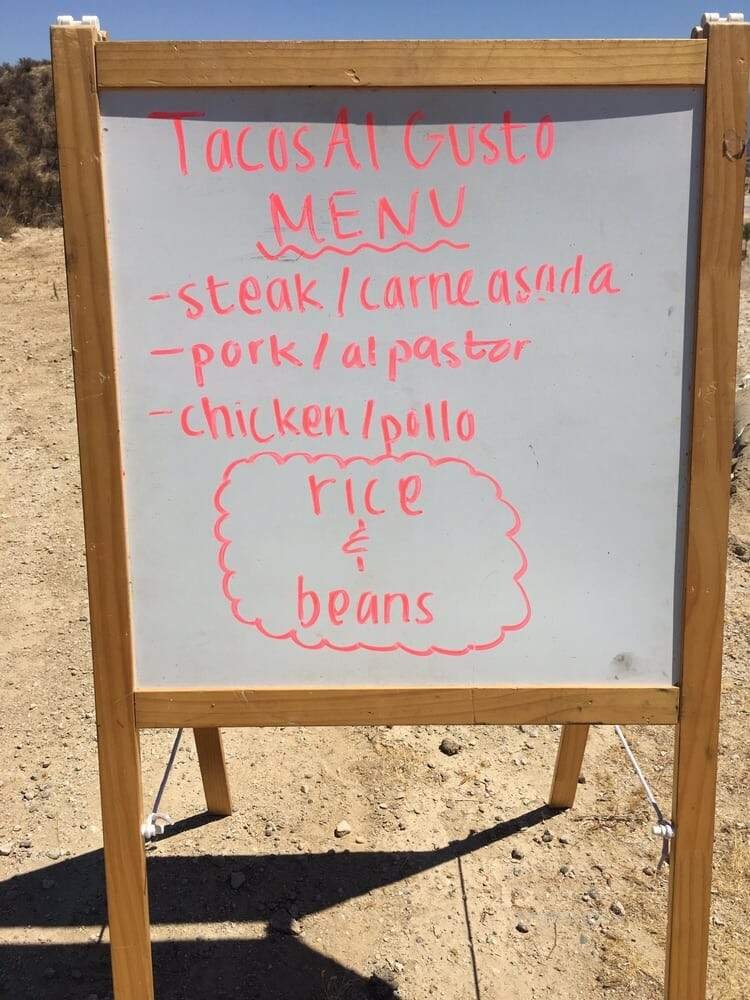 Tacos Al Gusto
MENU
-steak/carne asada
-pork/al pastor
-chicken/pollo
rice
&
beans